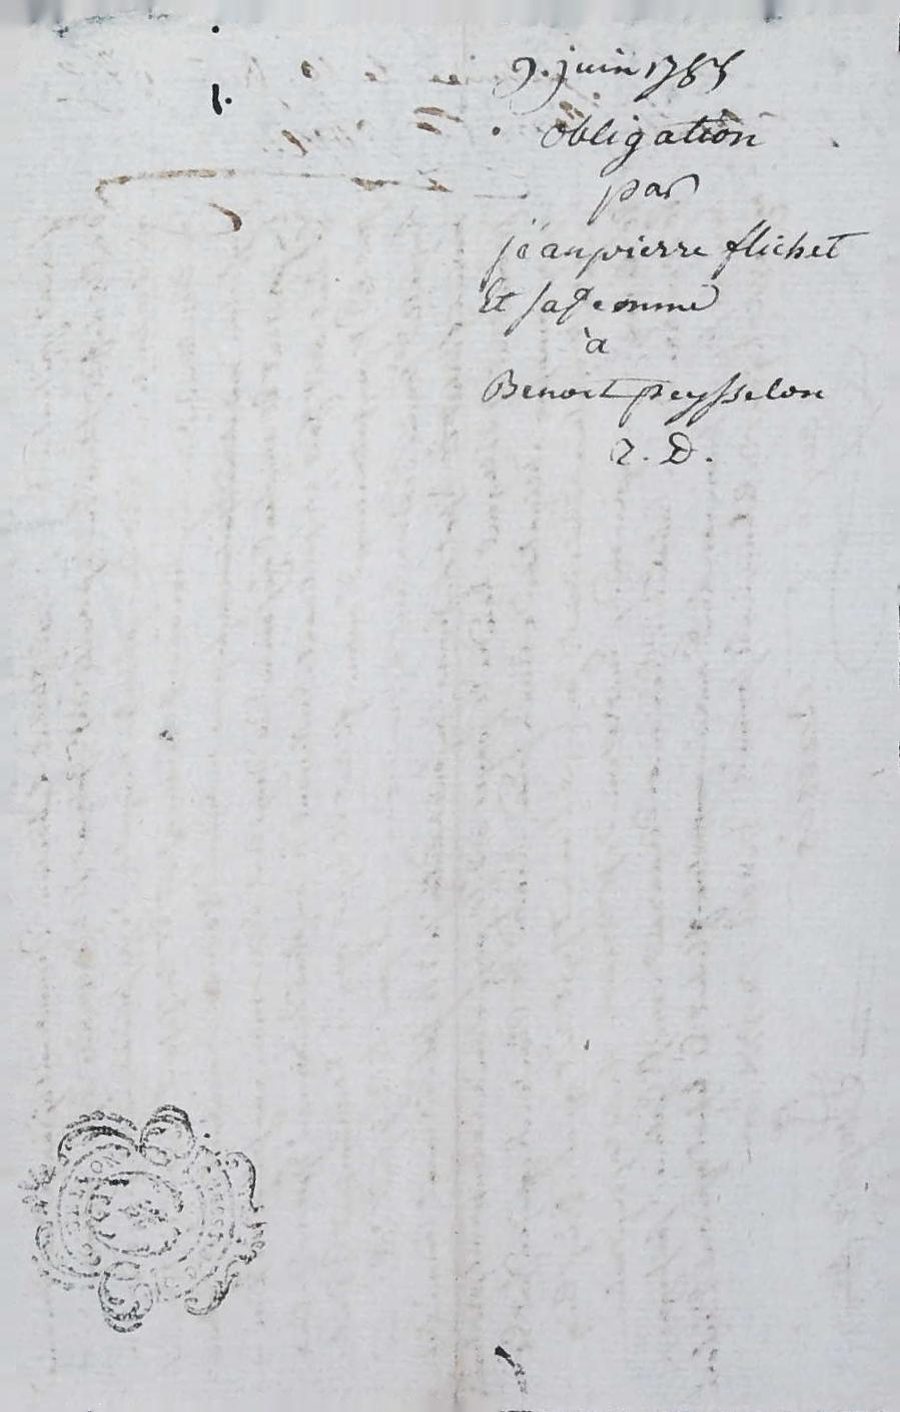 1.
9. juin 1785
obligation
par
jean pierre flichet
Et sa femme
à
Benoit peysselon
2. D.